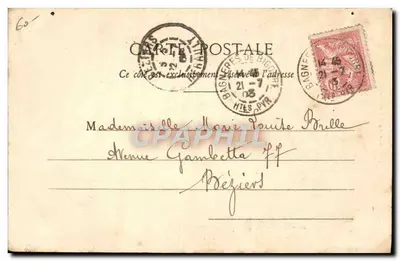 60-
CARTE POSTALE
Ce côté est exclusivement réservé à l'adresse
BAGNERES DE BIGORRE
21 -7
03
HTES-PYR
BEZIERS
HERAULT
Mademoiselle Marie Louise Brelle
Avenue Gambetta 77
Béziers
CPArama.com